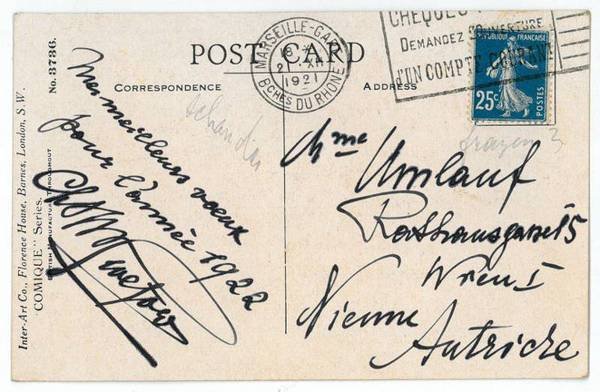 POST CARD
CORRESPONDENCE
ADDRESS
No. 3736.
Inter-Art Co., Florence House, Barnes, London, S.W.
"COMIQUE" Series.
BRITISH MANUFACTURE THROUGHOUT
MARSEILLE-GARE
1921
BCHES DU RHONE
CHEQUES
DEMANDEZ OUVERTURE
D'UN COMPTE COURANT
REPUBLIQUE FRANÇAISE
25c
POSTES
Mes meilleurs vœux
pour l'année 1922
Mme Umlauf
Rathausgasse 15
Wien I
Vienne
Autriche